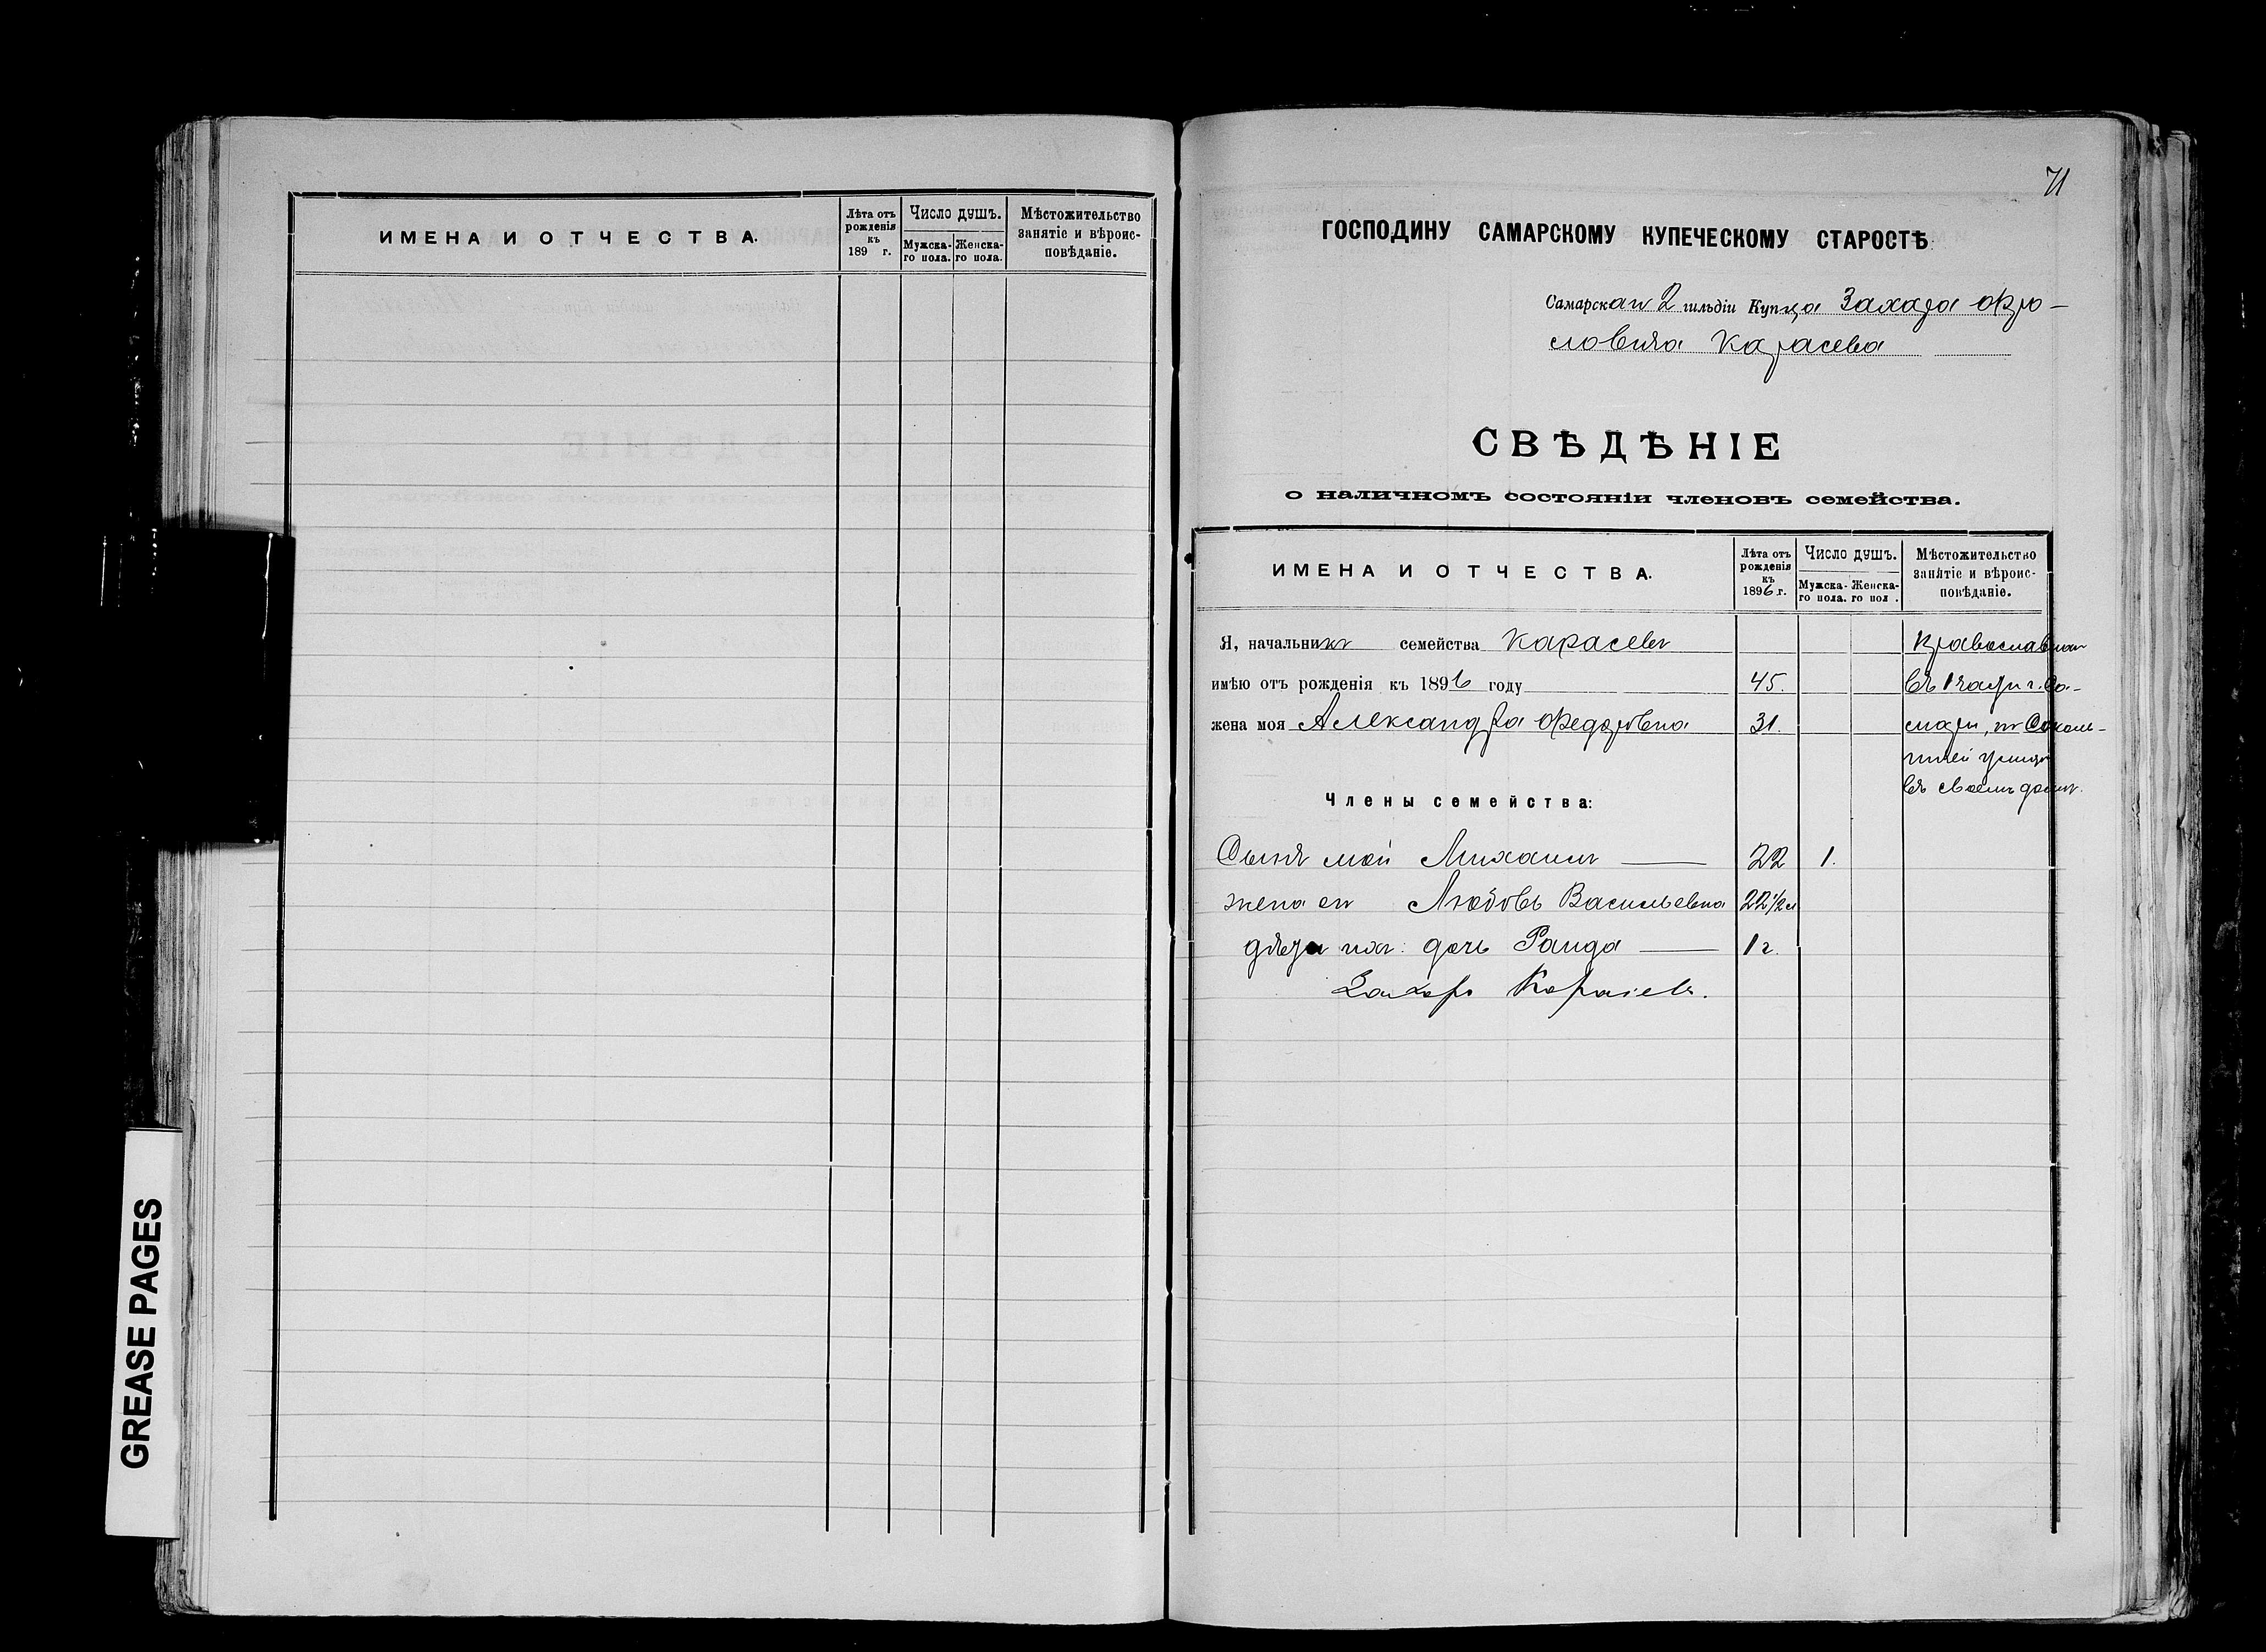 ИМЕНА И ОТЧЕСТВА.
Лѣта отъ рожденія къ 189 г.
Число душъ.
Мужска-го пола.
Женска-го пола.
Мѣстожительство занятіе и вѣроис-повѣданіе.
GREASE PAGES
71
ГОСПОДИНУ САМАРСКОМУ КУПЕЧЕСКОМУ СТАРОСТѢ
Самарскаго 2 гильдіи Купца Захара Фро-
ловича Карасева
СВѢДѢНІЕ
о наличномъ состояніи членовъ семейства.
ИМЕНА И ОТЧЕСТВА.
Лѣта отъ рожденія къ 1896 г.
Число душъ.
Мужска-го пола.
Женска-го пол .
Мѣстожительство занятіе и вѣроис-повѣданіе.
Я, начальникъ семейства Карасевъ Православная
имѣю отъ рожденія къ 1896 году 45. въ 1 части г. Са-
жена моя Александра Федоровна 31. мары, по Соколь-
ничей улицѣ
въ своемъ домѣ.
Члены семейства:
Сынъ мой Михаилъ 22 1.
жена его Любовь Васильевна 22 1/2 л
дѣти ихъ: дочь Раида 1 г.
Захаръ Карасевъ.